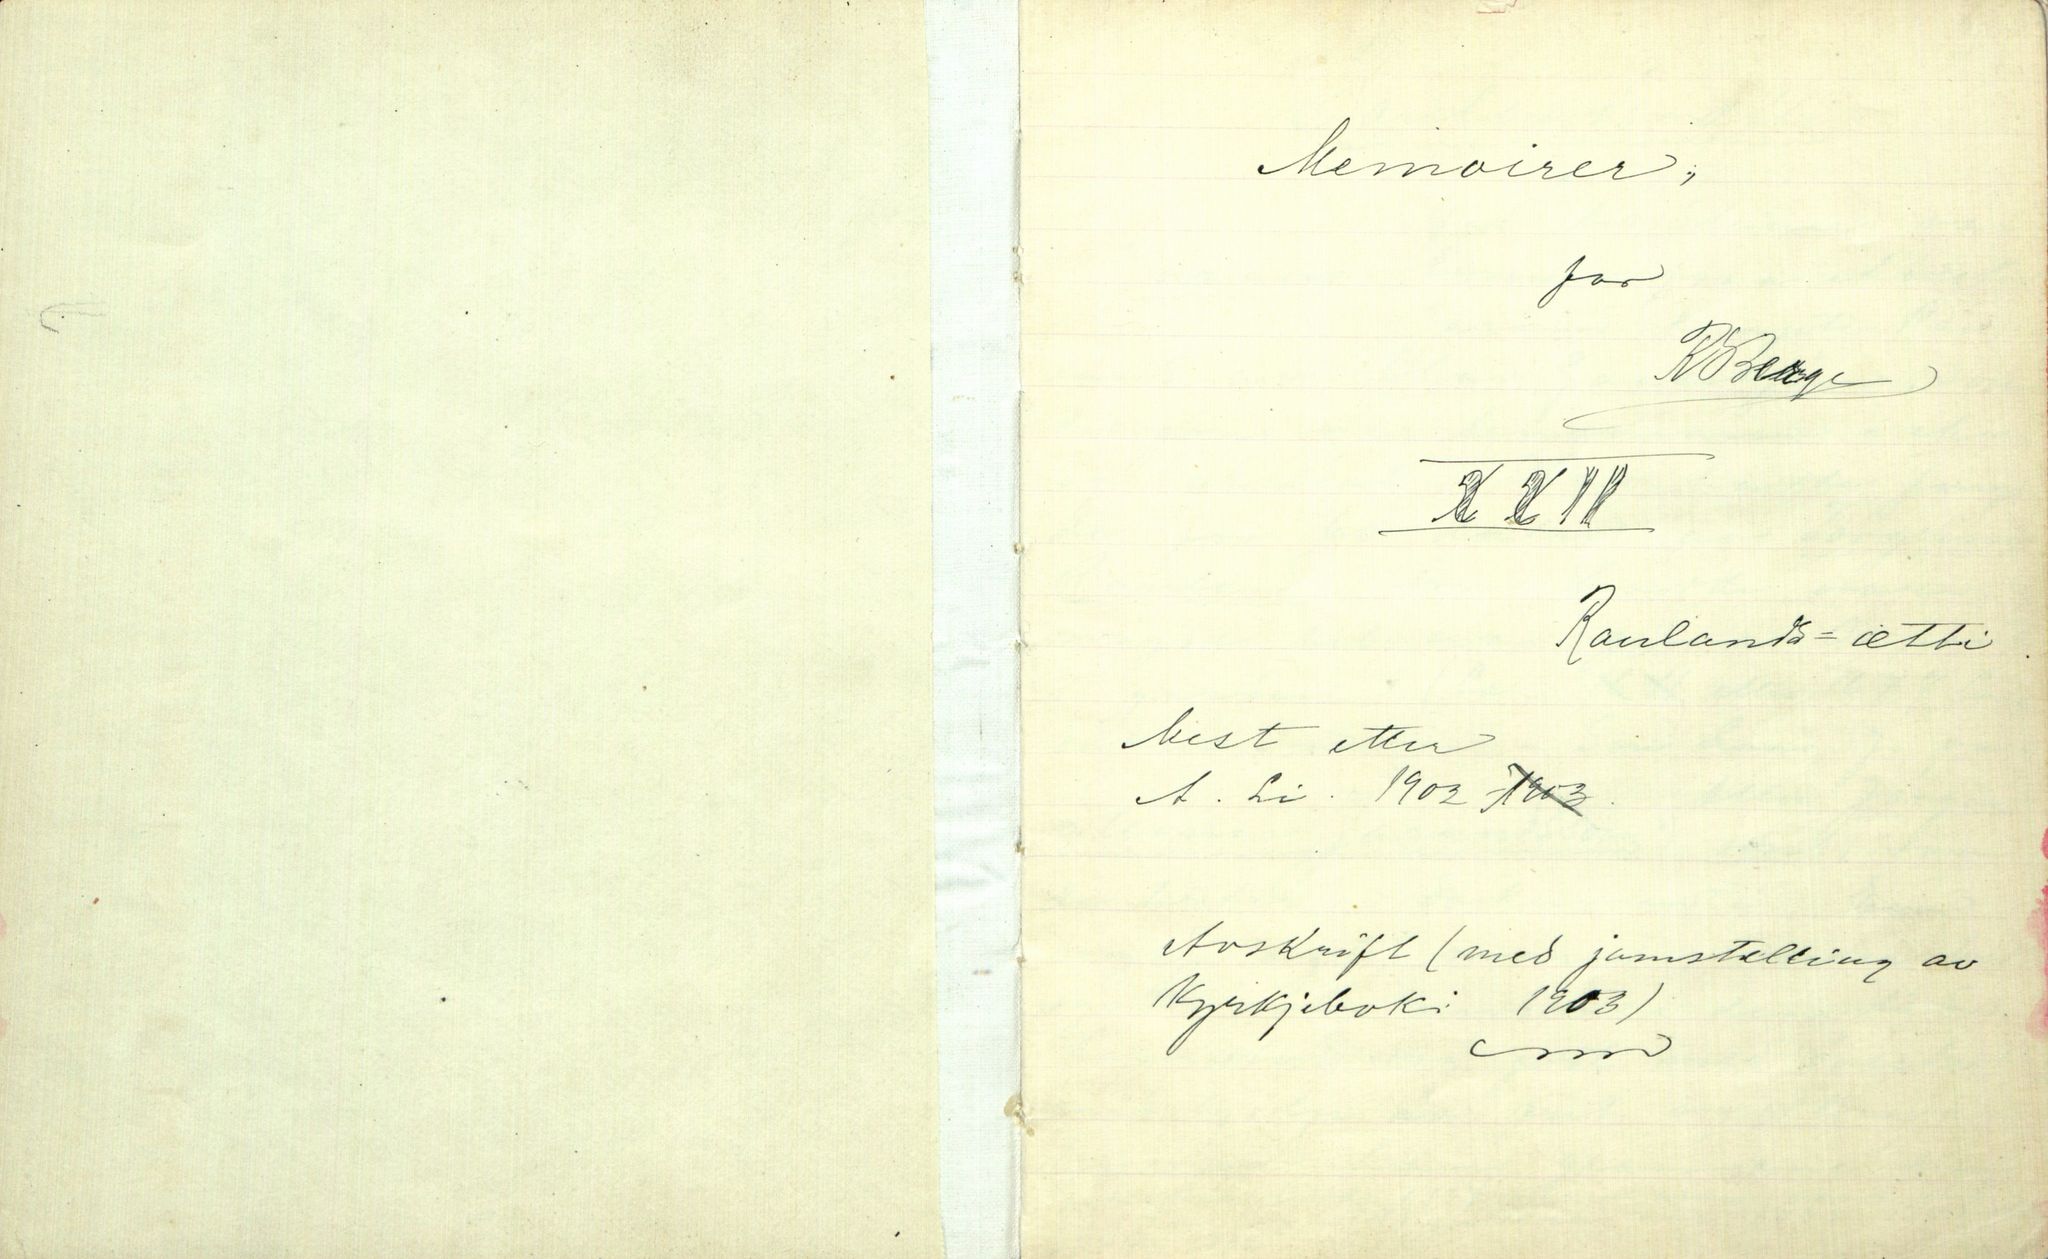 Memoirer,
for
K Berge
XXII
Raulands=ætti
Mest etter
A. Li. 1902 -1903.
Avskrift (med jamstelling av
Kyrkjeboki 1903)